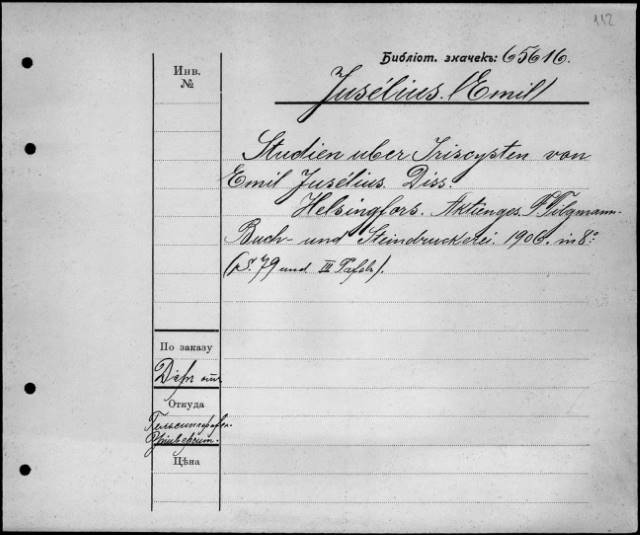 112
Библіот. значекъ: 65616.
Инв.
№
Jusélius. (Emil)
Studien uber Iriscysten von
Emil Jusélius. Diss.
Helsingfors. Aktienges. F. Tilgmann
Buch- und Steindruckerei. 1906. in 8°
(S. 79 und III Tafeln).
По заказу
Откуда
Гельсингфорс.
Университ.
Цѣна